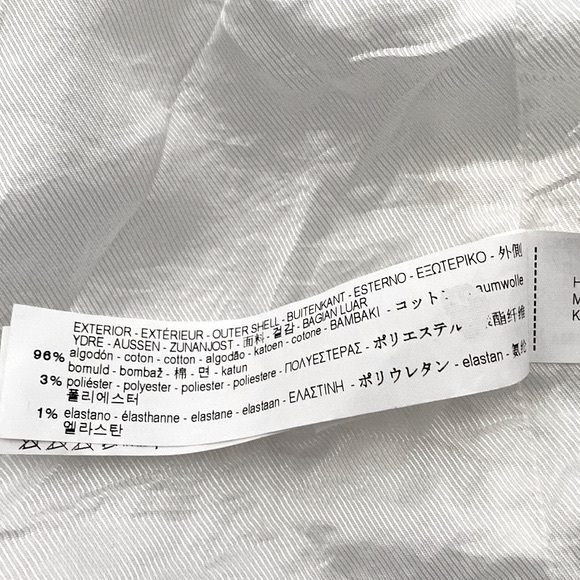 EXTERIOR - EXTÉRIEUR - OUTER SHELL - BUITENKANT - ESTERNO - ΕΞΩΤΕΡΙΚΟ - 外側
YDRE - AUSSEN - ZUNANJOST - 面料 - 겉감 - BAGIAN LUAR
96% algodón - coton - cotton - algodão - katoen - cotone - BAMBAKI - コットン
bomuld - bombaž - 棉 - 면 - katun
3% poliéster - polyester - poliester - poliestere - ΠΟΛΥΕΣΤΕΡΑΣ - ポリエステル
폴리에스터
1% elastano - élasthanne - elastane - elastaan - ΕΛΑΣΤΙΝΗ - ポリウレタン - elastan - 氨纶
엘라스탄
H
M
K